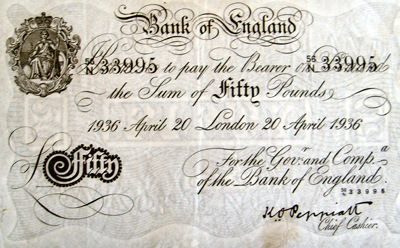 Bank of England
56/N 33995 to pay the Bearer on Demand 56/N 33995
the Sum of Fifty Pounds
1936 April 20 London 20 April 1936
For the Gov.r and Comp.a
of the Bank of England.
£ Fifty
K O Peppiatt
Chief Cashier.